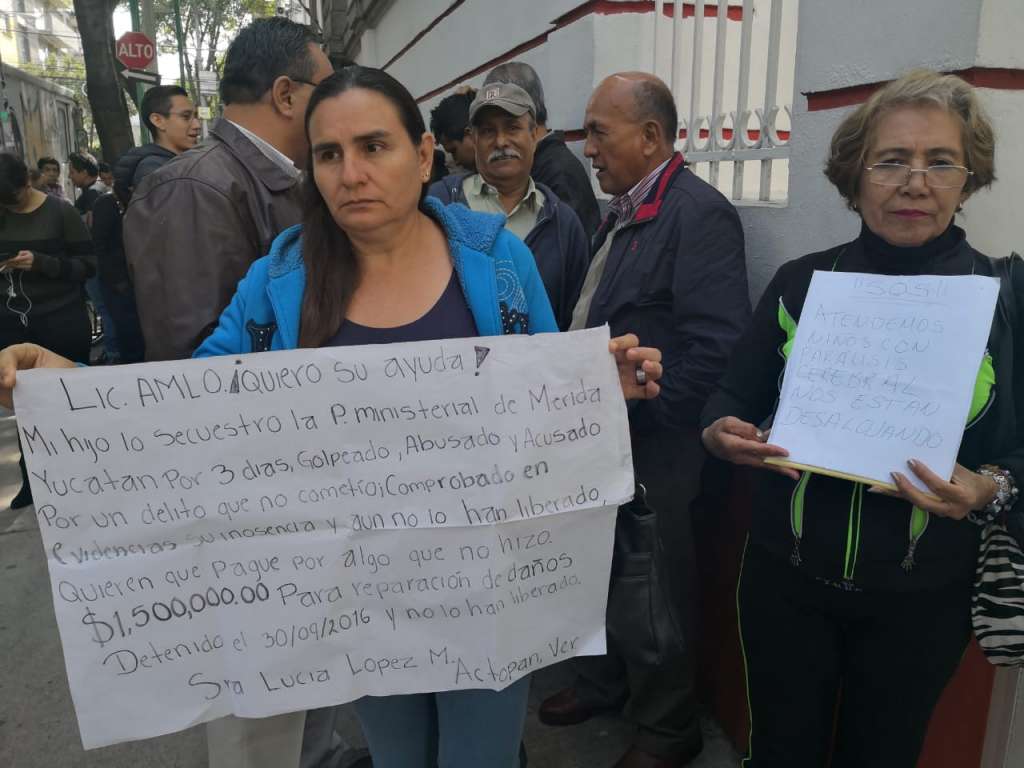 ALTO
LIC. AMLO. ¡QUIERO SU AYUDA!
Mi hijo lo secuestro la P. ministerial de Merida
Yucatan Por 3 dias, Golpeado, Abusado y Acusado
Por un delito que no cometio; Comprobado en
evidencias su inosencia y aun no lo han liberado,
Quieren que pague por algo que no hizo.
$1,500,000.00 Para reparación de daños
Detenido el 30/09/2016 y no lo han liberado.
Sra Lucia Lopez M. Actopan, Ver
"SOS"
ATENDEMOS
NIÑOS CON
PARALISIS
CEREBRAL
NOS ESTAN
DESALOJANDO